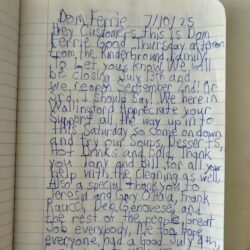 Dom Ferrie 7/10/25
Hey Customers This Is Dom
Ferrie Good Thursday afternoon
From the Kinderground family
To Let you know We will
be closing July 15th and
We reopen September 2nd! Or
Wait I should Say! We here in
Wallingford Appreciate your
Support all the way up into
This Saturday so come on down
and try our Soups, Desserts,
Hot Drinks and Soda. Thank
you Jany and Bill for all your
help with the Cleaning as well
Also a special thank you to
Teresa and Gary Ollila, Frank
Raucci, Dee Genovese, and
the rest of the people great
Job everybody, We too hope
everyone, had a good July 4th,